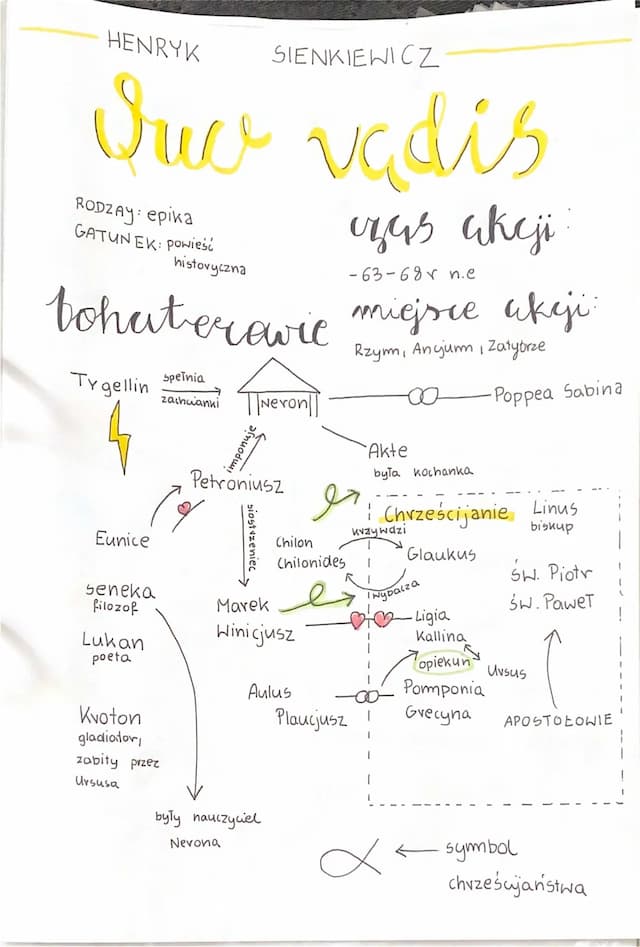 HENRYK SIENKIEWICZ
Quo vądis
RODZAJ: epika
GATUNEK: powieść
historyczna
czas akcji:
-63-68r n.e
miejsce akcji:
Rzym, Ancjum, Zatybrze
bohaterowie
Tygellin
spełnia
zachcianki
Neron
Poppea Sabina
Akte
była kochanka
imponuje
Petroniusz
siostrzeniec
Eunice
Chrześcijanie
Linus
biskup
Chilon
Chilonides
krzywdzi
Glaukus
wybacza
św. Piotr
św. Paweł
APOSTOŁOWIE
seneka
filozof
Marek
Winicjusz
Ligia
Kallina
opiekun
Ursus
Lukan
poeta
Aulus
Plaucjusz
Pomponia
Grecyna
Kroton
gladiator,
zabity przez
Ursusa
były nauczyciel
Nerona
symbol
chrześcijaństwa